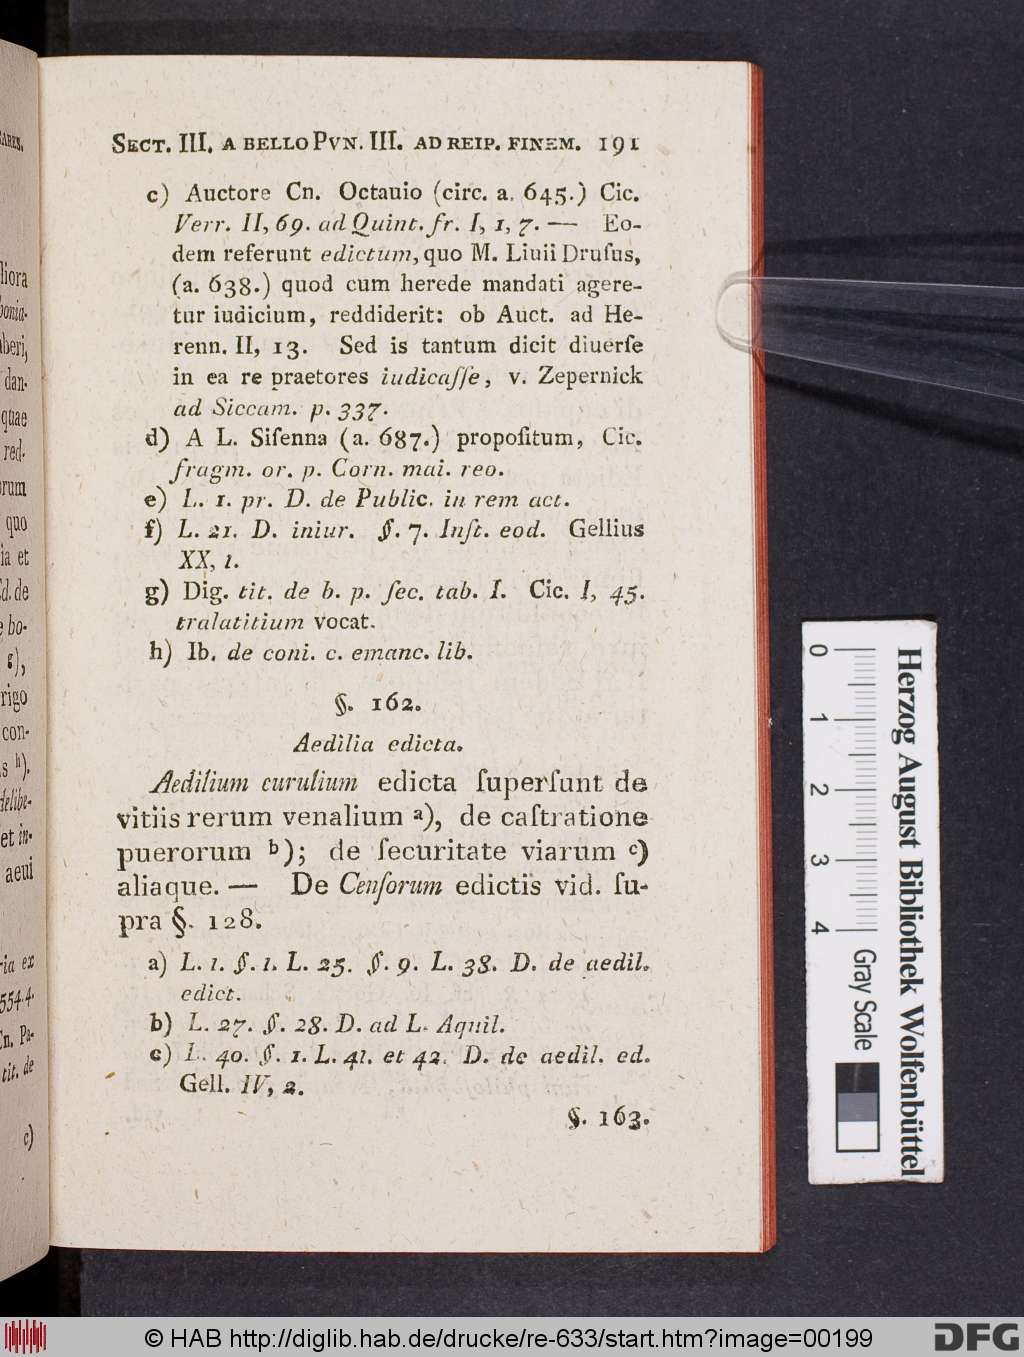 SECT. III. A BELLO PVN. III. AD REIP. FINEM. 191
c) Auctore Cn. Octauio (circ. a. 645.) Cic.
Verr. II, 69. ad Quint. fr. I, 1, 7. — Eo-
dem referunt edictum, quo M. Liuii Druſus,
(a. 638.) quod cum herede mandati agere-
tur iudicium, reddiderit: ob Auct. ad He-
renn. II, 13. Sed is tantum dicit diuerſe
in ea re praetores iudicaſſe, v. Zepernick
ad Siccam. p. 337.
d) A L. Siſenna (a. 687.) propoſitum, Cic.
fragm. or. p. Corn. mai. reo.
e) L. 1. pr. D. de Public. in rem act.
f) L. 21. D. iniur. §. 7. Inſt. eod. Gellius
XX, 1.
g) Dig. tit. de b. p. ſec. tab. I. Cic. I, 45.
tralatitium vocat.
h) Ib. de coni. c. emanc. lib.
§. 162.
Aedilia edicta.
Aedilium curulium edicta ſuperſunt de
vitiis rerum venalium a), de caſtratione
puerorum b); de ſecuritate viarum c)
aliaque. — De Cenſorum edictis vid. ſu-
pra §. 128.
a) L. 1. §. 1. L. 25. §. 9. L. 38. D. de aedil.
edict.
b) L. 27. §. 28. D. ad L. Aquil.
c) L. 40. §. 1. L. 41. et 42. D. de aedil. ed.
Gell. IV, 2.
§. 163.
liora
beri,
dan-
quae
red-
orum
quo
ia et
d. de
bo-
g),
rigo
con-
s h).
delibe-
et in-
aeui
ria ex
554. 4.
Cn. Pa-
tit. de
c)
0 1 2 3 4 Gray Scale
Herzog August Bibliothek Wolfenbüttel
© HAB http://diglib.hab.de/drucke/re-633/start.htm?image=00199
DFG